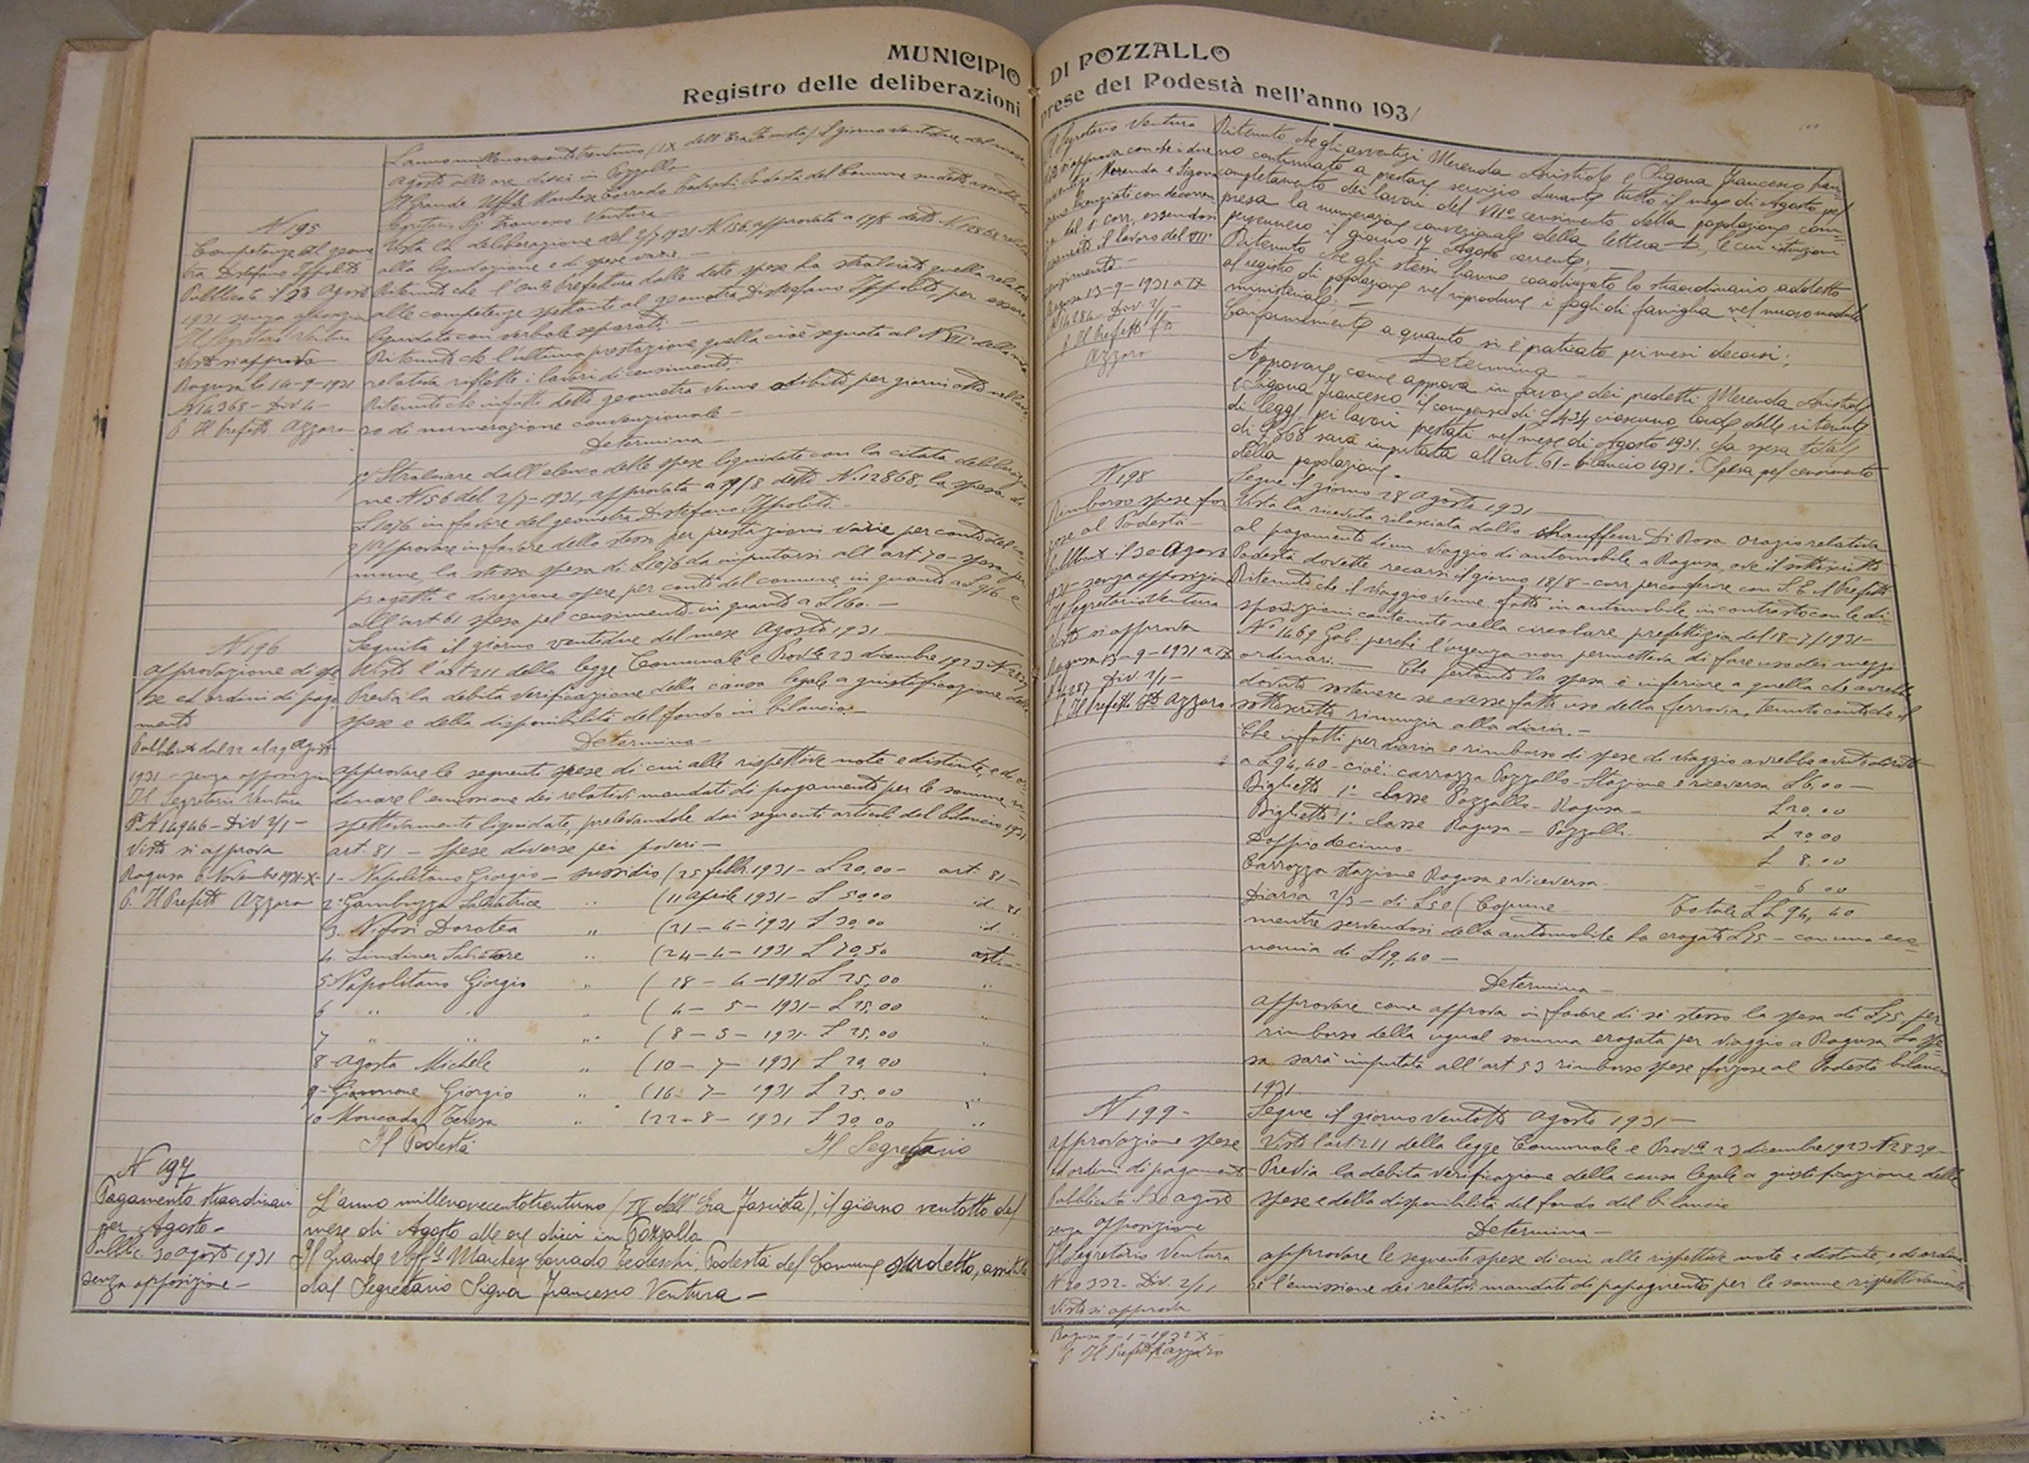 MUNICIPIO DI POZZALLO
Registro delle deliberazioni prese del Podestà nell'anno 1931
N 195
Competenze al geome
tra Distefano Ippolito
Pubblicata il 23 Agosto
1931 senza opposizione
Il Segretario Ventura
Visto si approva
Ragusa li 14-9-1931
N 14368 - Div 4 -
p. Il Prefetto Azzaro
L'anno millenovecentotrentuno (IX dell'Era Fascista) il giorno ventidue del mese
Agosto alle ore dieci in Pozzallo
Il Grande Uff.le Marchese Corrado Tedeschi Podestà del Comune
Segretario Sig Francesco Ventura -
Vista la deliberazione del 2/7 1931 N 156 approvata
alla liquidazione di spese varie -
Ritenuto che l'On.le Prefettura dalle dette spese ha stralciato quella relativa
alle competenze spettanti al geometra Distefano Ippolito, per essere
liquidata con verbale separato -
Ritenuto che l'ultima prestazione quella cioè segnata al N VII della
relativa riflette i lavori di censimento
Ritenuto che infatti detto geometra venne adibito per giorni otto
ro di numerazione convenzionale -
Determina -
1/ Stralciare dall'elenco delle spese liquidate con la citata deliberazio
ne N 156 del 2/7-1931, approvata a 19/8 detto N. 12868, la spesa di
L 1076 in favore del geometra Distefano Ippolito -
2/ Approvare in favore dello stesso per prestazioni varie per conto del co
mune, la stessa spesa di L 1076 da imputarsi all'art 70 - spesa per
progetti e direzione opere per conto del comune in quanto a L 916 e
all'art 61 spesa pel censimento in quanto a L 160. -
N 196
Approvazione di spe
se ed ordini di paga
mento
Pubblicata dal 22 al 29 Agosto
1931 - senza opposizione
Il Segretario Ventura
P.N 14946 - Div 2/1 -
Visto si approva
Ragusa 6 Novembre 1931-X-
p. Il Prefetto Azzaro
Seguita il giorno ventidue del mese Agosto 1931
Visto l'art 211 della legge Comunale e Prov.le 23 dicembre 1923 N 2839
Previa la debita verificazione della causa legale a giustificazione delle
spese e della disponibilità del fondo in bilancio -
Determina -
approvare le seguenti spese di cui alle rispettive note e distinte, e di or
dinare l'emissione dei relativi mandati di pagamento per le somme ri
spettivamente liquidate, prelevandole dai seguenti articoli del bilancio 1931
art. 81 - Spese diverse pei poveri -
1 - Napolitano Giorgio - sussidio (25 febb. 1931 - L 20,00 - art. 81 -
2 Gambuzza Salvatrice " (11 Aprile 1931 - L 50,00 id 81
3 Dorotea " (21 - 4 - 1931 L 30.00 id "
4 Salvatore " (24 - 4 - 1931 L 70,50
5 Napolitano Giorgio " (28 - 4 - 1931 L 25,00 "
6 " " " (4 - 5 - 1931 - L 25,00 "
7 " " " (8 - 5 - 1931 - L 25,00 "
8 Agosta Michele " (10 - 7 - 1931 L 20,00
9 - Giorgio " (16 - 7 - 1931 L 25.00 "
10 Moncada Teresa " (22 - 8 - 1931 L 30,00 "
Il Podestà Il Segretario
N 197
Pagamento straordinari
per Agosto -
Public. 30 agosto 1931
senza opposizione -
L'anno millenovecentotrentuno (IX dell'Era Fascista), il giorno ventotto del
mese di Agosto alle ore dieci in Pozzallo
Il Grande Uff.le Marchese Corrado Tedeschi, Podestà del Comune sudetto, assistito
dal Segretario Signor Francesco Ventura -
Il Segretario Ventura
Si approva con che i due
avventizi Merenda e Sigona
licenziati con decorren
il lavoro del VII°
censimento -
Ragusa 13-9-1931 a IX
N 14284 - Div. 2/1 -
p. Il Prefetto f.to
Azzaro
Ritenuto che gli avventizi Merenda Aristide e Sigona Francesco han
no continuato a prestare servizio durante tutto il mese di Agosto pel
completamento dei lavori del VII° censimento della popolazione com
presa la numerazione convenzionale della lettera D, le cui istruzioni
pervennero il giorno 14 Agosto corrente; -
Ritenuto che gli stessi hanno coadiuvato lo straordinario addetto
al registro di popolazione nel riprodurre i fogli di famiglia nel nuovo modello
ministeriale; -
Conformemente a quanto si è praticato pei mesi decorsi;
Determina -
Approvare, come approva in favore dei predetti Merenda Aristide
e Sigona Francesco il compenso di L 434 ciascuno, lordo delle ritenute
di legge, pei lavori prestati nel mese di Agosto 1931. La spesa totale
di L 868 sarà imputata all'art. 61 - bilancio 1931: Spesa pel censimento
della popolazione -
N 198
Rimborso spese for
zose al Podestà -
Pubblicata il 30 Agosto
1931 - senza opposizione
Il Segretario Ventura
Visto si approva
Ragusa 13-9-1931 a IX
N 14287 Div 2/1 -
p. Il Prefetto f.to Azzaro
Segue il giorno 28 Agosto 1931
Vista la ricevuta rilasciata dallo chauffeur Di Rosa Orazio relativa
al pagamento di un viaggio di automobile a Ragusa, ove il sottoscritto
Podestà dovette recarsi il giorno 18/8 - corr. per conferire con S.E. il Prefetto
Ritenuto che il viaggio venne fatto in automobile, in contrasto con le di
sposizioni contenute nella circolare prefettizia del 18-7/1931 -
N° 1469 Gab. perchè l'urgenza non permetteva di fare uso dei mezzi
ordinari. - Che pertanto la spesa è inferiore a quella che avrebbe
dovuto sostenere se avesse fatto uso della ferrovia, tenuto conto che il
sottoscritto rinunzia alla diaria. -
Che infatti per diaria e rimborso di spese di viaggio avrebbe avuto diritto
a L 94,40 - cioè: carrozza Pozzallo - Stazione e viceversa L 6,00 -
Biglietto 1ª classe Pozzallo - Ragusa - L 20,00
Biglietto 1ª classe Ragusa - Pozzallo L 20,00
Doppio decimo L 8,00
Carrozza stazione Ragusa e viceversa - 6 00
Diaria 2/3 - di L 50 Totale L 94,40
mentre servendosi della automobile ha erogato L 75 - con una eco
nomia di L 19,40 -
Determina -
approvare come approva in favore di sè stesso la spesa di L 75 per
rimborso della ugual somma erogata per viaggio a Ragusa La spe
sa sarà imputata all'art 53 rimborso spese forzose al Podestà bilancio
1931
N 199 -
Approvazione spese
ed ordini di pagamenti
Pubblicata il 30 agosto
senza opposizione
Il Segretario Ventura
N 20332 - Div. 2/1,
Visto si approva
Ragusa 9-1-1932 X -
p. Il Prefetto Azzaro
Segue il giorno Ventotto Agosto 1931 -
Visto l'art 211 della legge Comunale e Prov.le 23 dicembre 1923 N 2839 -
Previa la debita verificazione della causa legale a giustificazione delle
spese e della disponibilità del fondo del bilancio
Determina -
approvare le seguenti spese di cui alle rispettive note e distinte, e di ordina
re l'emissione dei relativi mandati di papaguento per le somme rispettivamente